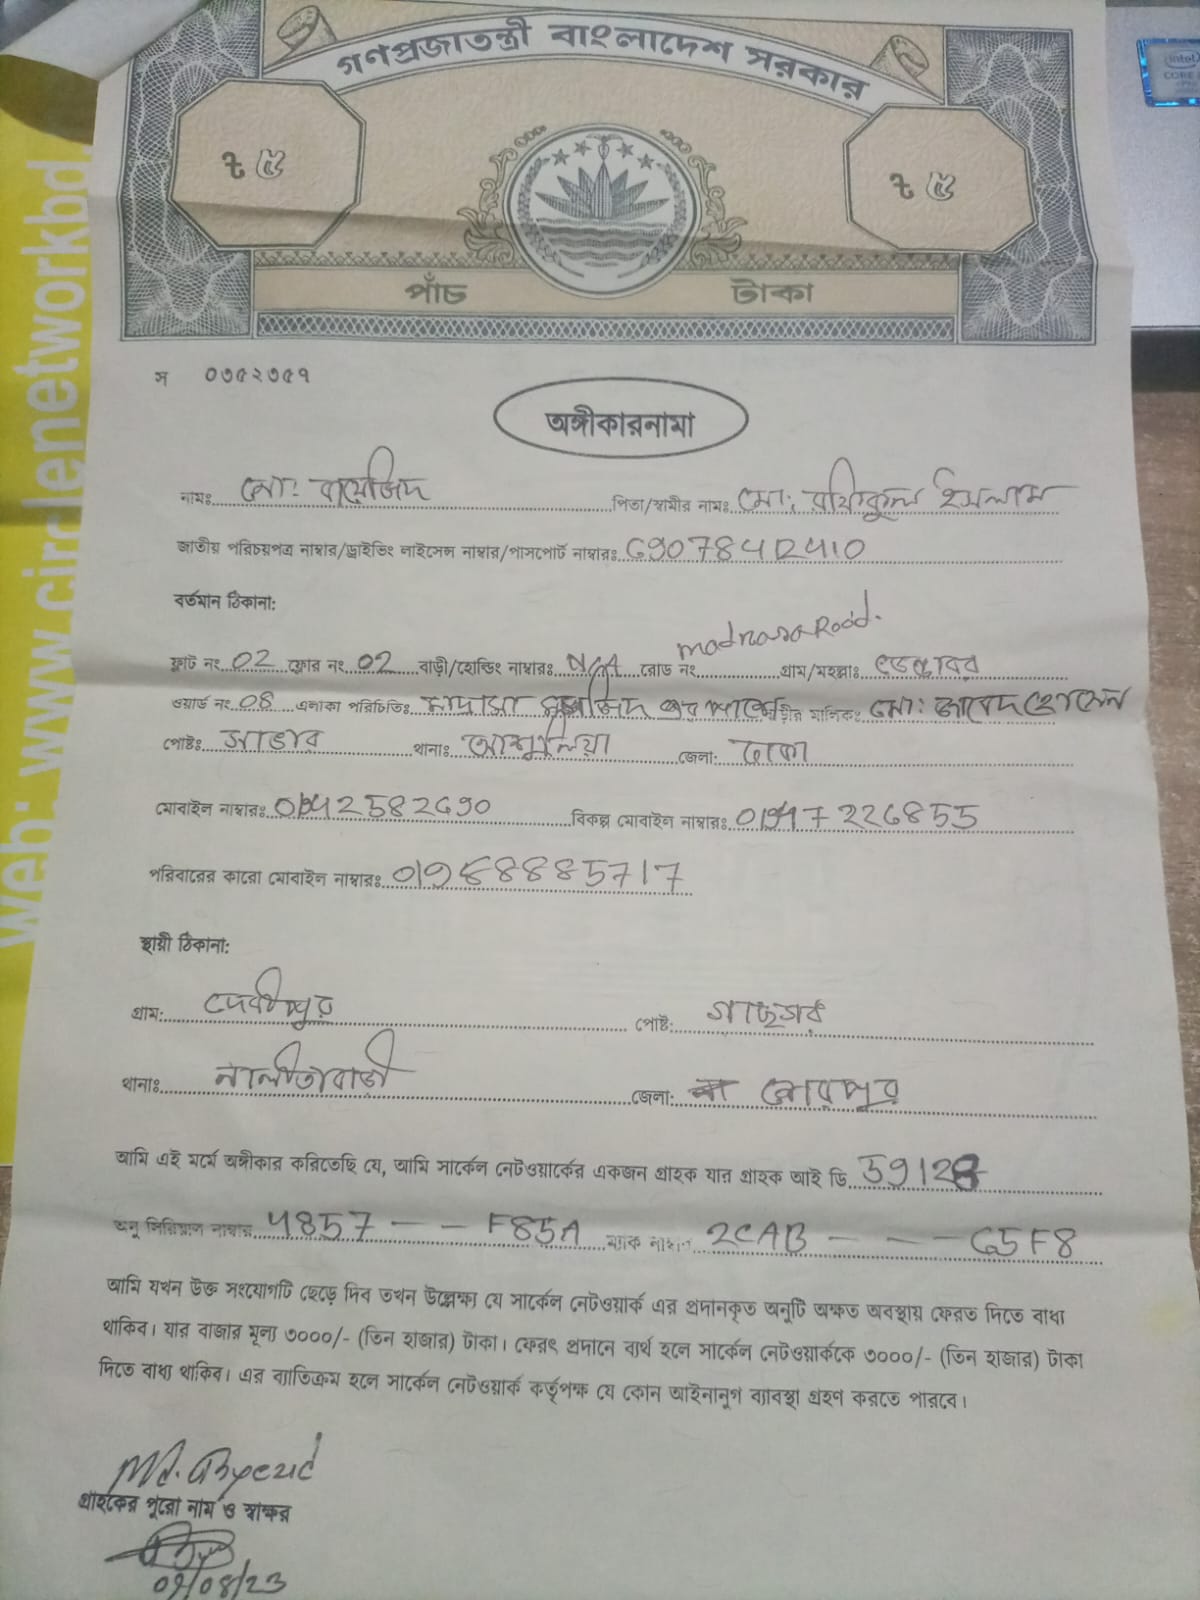 গণপ্রজাতন্ত্রী বাংলাদেশ সরকার
৳ ৫ ৳ ৫
পাঁচ টাকা
স ০৩৫২৩৫৭
অঙ্গীকারনামা
নামঃ মো: বায়েজিদ পিতা/স্বামীর নামঃ মো: রফিকুল ইসলাম
জাতীয় পরিচয়পত্র নাম্বার/ড্রাইভিং লাইসেন্স নাম্বার/পাসপোর্ট নাম্বারঃ 6907842410
বর্তমান ঠিকানা:
ফ্লাট নং 02 ফ্লোর নং 02 বাড়ী/হোল্ডিং নাম্বারঃ N/A রোড নং madrasa Road. গ্রাম/মহল্লাঃ ডেন্ডাবর
ওয়ার্ড নং 08 এলাকা পরিচিতিঃ মাদ্রাসা মসজিদ এর পাশে বাড়ীর মালিকঃ মো: জাবেদ হোসেন
পোষ্টঃ সাভার থানাঃ আশুলিয়া জেলা: ঢাকা
মোবাইল নাম্বারঃ বিকল্প মোবাইল নাম্বারঃ
পরিবারের কারো মোবাইল নাম্বারঃ 01988885717
স্থায়ী ঠিকানা:
গ্রাম: দেবীপুর পোষ্ট:
থানাঃ নালীতাবাড়ী জেলা: শেরপুর
আমি এই মর্মে অঙ্গীকার করিতেছি যে, আমি সার্কেল নেটওয়ার্কের একজন গ্রাহক যার গ্রাহক আই ডি 59128
অনু সিরিয়াল নাম্বার 4857 - - F85A ম্যাক নাম্বার 2CAB - - - G5F8
আমি যখন উক্ত সংযোগটি ছেড়ে দিব তখন উল্লেক্ষ্য যে সার্কেল নেটওয়ার্ক এর প্রদানকৃত অনুটি অক্ষত অবস্থায় ফেরত দিতে বাধ্য
থাকিব। যার বাজার মূল্য ৩০০০/- (তিন হাজার) টাকা। ফেরৎ প্রদানে ব্যর্থ হলে সার্কেল নেটওয়ার্ককে ৩০০০/- (তিন হাজার) টাকা
দিতে বাধ্য থাকিব। এর ব্যাতিক্রম হলে সার্কেল নেটওয়ার্ক কর্তৃপক্ষ যে কোন আইনানুগ ব্যাবস্থা গ্রহণ করতে পারবে।
Md. Byezid
গ্রাহকের পুরো নাম ও স্বাক্ষর
09/08/23
web: www.circlenetworkbd
intel
CORE